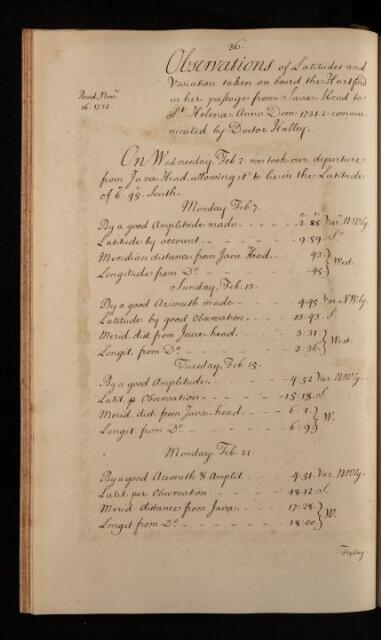 36.
Observations of Latitudes and
Variation taken on board the Hartford
Read, Novr.
16. 1732.
in her passage from Java Head to
St. Helena Anno Dom: 1731/2 commu-
nicated by Doctor Halley.
On Wednesday Feb 2. we took our departure
from Java Head, allowing it to lie in the Latitude
of 6°. 45'. South.
Monday Feb. 7.
By a good Amplitude made - - - - - 3..25 Var. N.Wly.
Latitude by account - - - - - - 9..59 So.
Meridian distance from Java Head - - 43 } West.
Longitude from Do. - - - - - - 45
Sunday, Feb. 13.
By a good Azimuth made - - - - - 4..45 Var N.W.ly.
Latitude by good Observation - - - - 13..43 S.
Merid. dist from Java head - - - - 3..31. } West.
Longit. from Do. - - - - - - - 3..36.
Tuesday, Feb 15.
By a good Amplitude - - - - - - 4..52 Var. N.Wly.
Latit. p Observation - - - - - - 15..18. S.
Merid. dist. from Java head - - - 6..1. } W.
Longit. from Do. - - - - - - - 6..9
Monday Feb. 21.
By a good Azimuth & Amplit - - - - 4..51. Var. N.Wly.
Latit. per Observation - - - - - 18..12 S.
Merid distance from Java - - - - 17..28. } W.
Longit from Do. - - - - - - - 18..00.